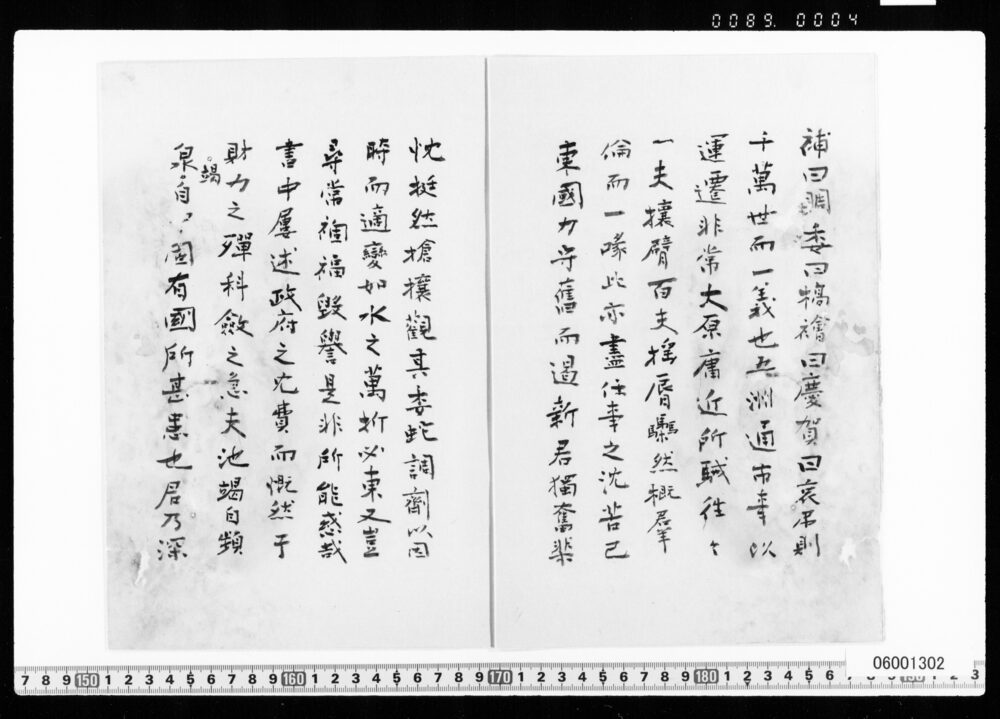 0089.0004
補曰調委曰犒禬曰慶賀曰哀吊則
千萬世而一義也五洲通市事以
運遷非常大原庸近所駴往々
一夫攘臂百夫搖脣驟然概羣
倫而一喙此亦盡任事之沈苦已
東國力守舊而遏新君獨奮棐
忱挺然搶攘觀其委蛇調齊以因
時而適變如水之萬折必東又豈
尋常禍福毀譽是非所能惑哉
書中屢述政府之冗費而慨然于
財力之殫科斂之急夫池竭自頻
泉竭自中固有國所甚患也君乃深
06001302
7 8 9 150 1 2 3 4 5 6 7 8 9 160 1 2 3 4 5 6 7 8 9 170 1 2 3 4 5 6 7 8 9 180 1 2 3 4 5 6 7 8 9 190 1 2 3